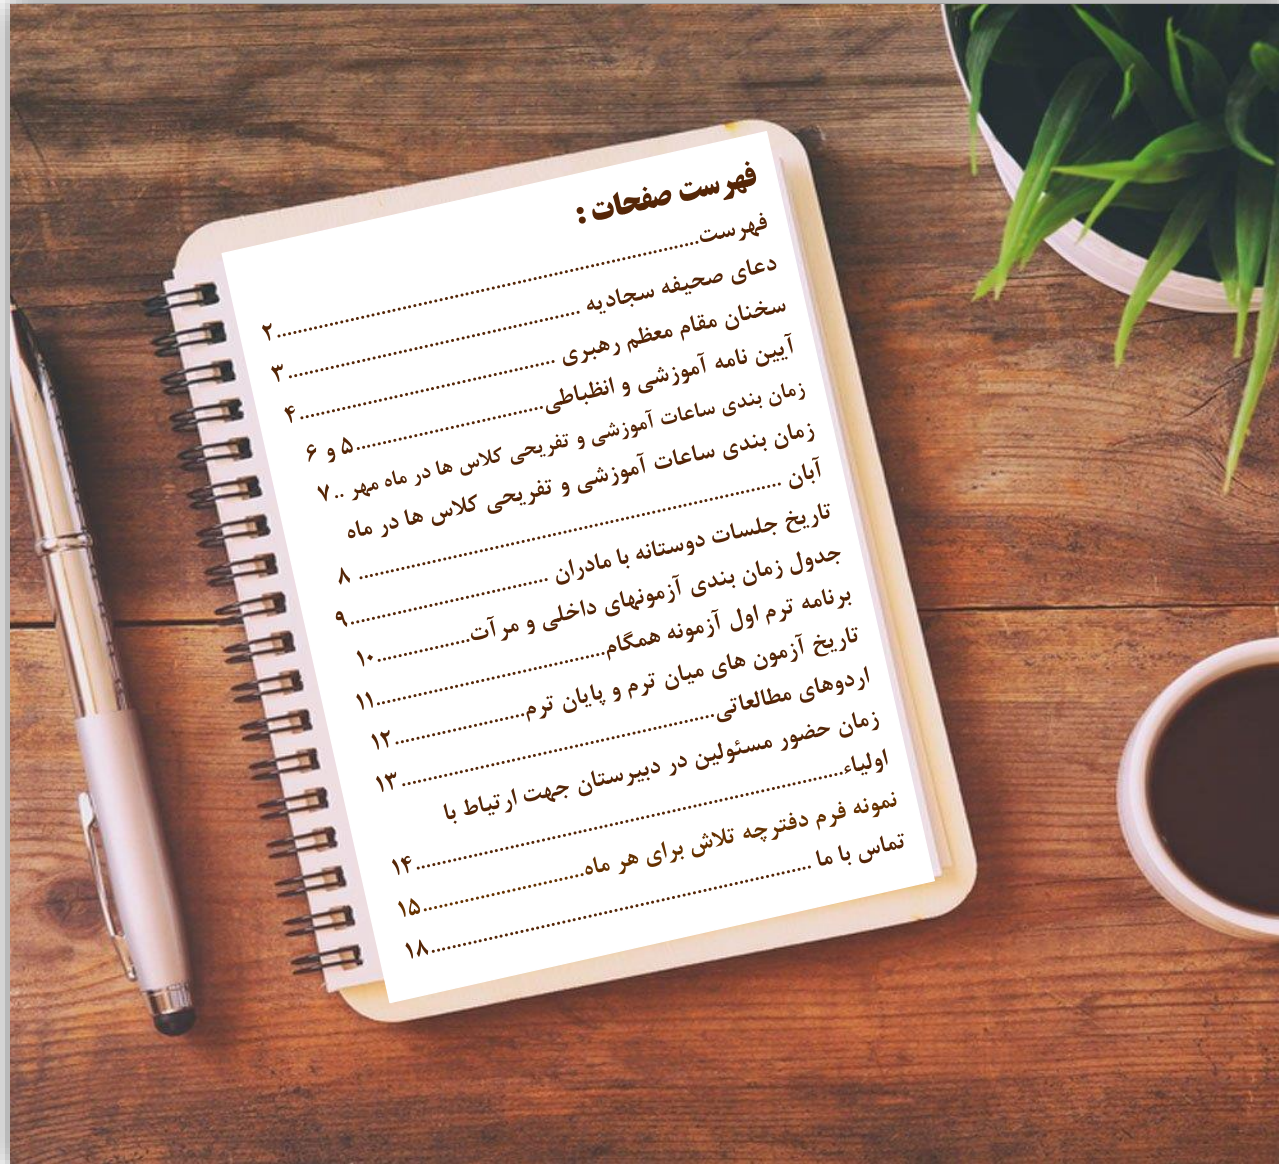 فهرست صفحات :
فهرست............................................................................................۲
دعای صحیفه سجادیه ................................................................۳
سخنان مقام معظم رهبری .........................................................۴
آیین نامه آموزشی و انظباطی..........................................۵ و ۶
زمان بندی ساعات آموزشی و تفریحی کلاس ها در ماه مهر ..۷
زمان بندی ساعات آموزشی و تفریحی کلاس ها در ماه
آبان ................................................................................................ ۸
تاریخ جلسات دوستانه با مادران ............................................۹
جدول زمان بندی آزمونهای داخلی و مرآت.....................۱۰
برنامه ترم اول آزمونه همگام...................................................۱۱
تاریخ آزمون های میان ترم و پایان ترم.............................۱۲
اردوهای مطالعاتی......................................................................۱۳
زمان حضور مسئولین در دبیرستان جهت ارتیاط با
اولیاء................................................................................................۱۴
نمونه فرم دفترچه تلاش برای هر ماه....................................۱۵
تماس با ما ...................................................................................۱۸